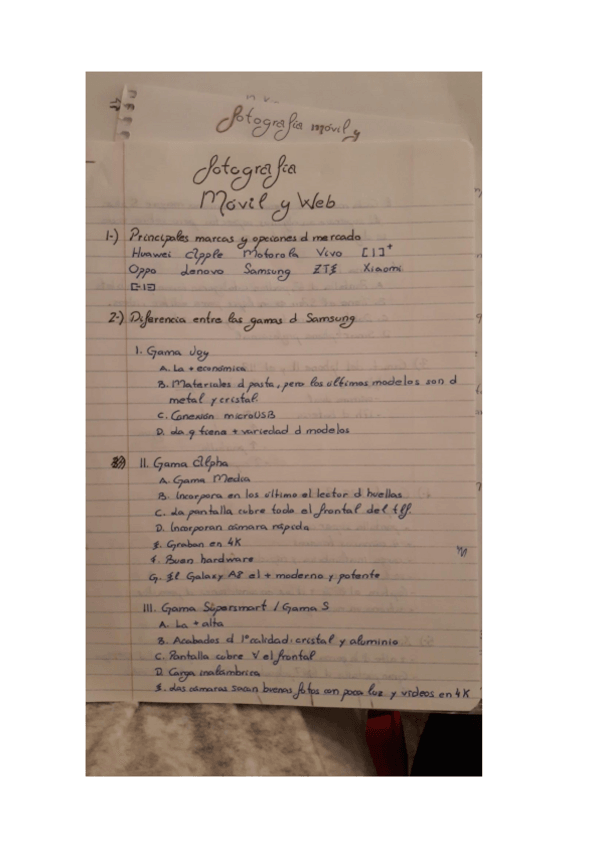 fotografía móvil y
fotografía
Móvil y Web
1-) Principales marcas y opciones d mercado
Huawei Apple Motorola Vivo [1]+
Oppo Lenovo Samsung ZTE Xiaomi
[-1]
2-) Diferencia entre las gamas d Samsung
I. Gama Joy
A. La + económica
B. Materiales d pasta, pero los últimos modelos son d
metal y cristal.
C. Conexión microUSB
D. La q tiene + variedad d modelos
II. Gama Alpha
A. Gama Media
B. Incorpora en los último el lector d huellas
C. La pantalla cubre todo el frontal del tlf.
D. Incorporan cámara rápida
E. Graban en 4K
F. Buen hardware
G. El Galaxy A8 el + moderno y potente
III. Gama Súpersmart / Gama S
A. La + alta
B. Acabados d 1ª calidad: cristal y aluminio
C. Pantalla cubre el frontal
D. Carga inalámbrica
E. Las cámaras sacan buenas fotos con poca luz y vídeos en 4K